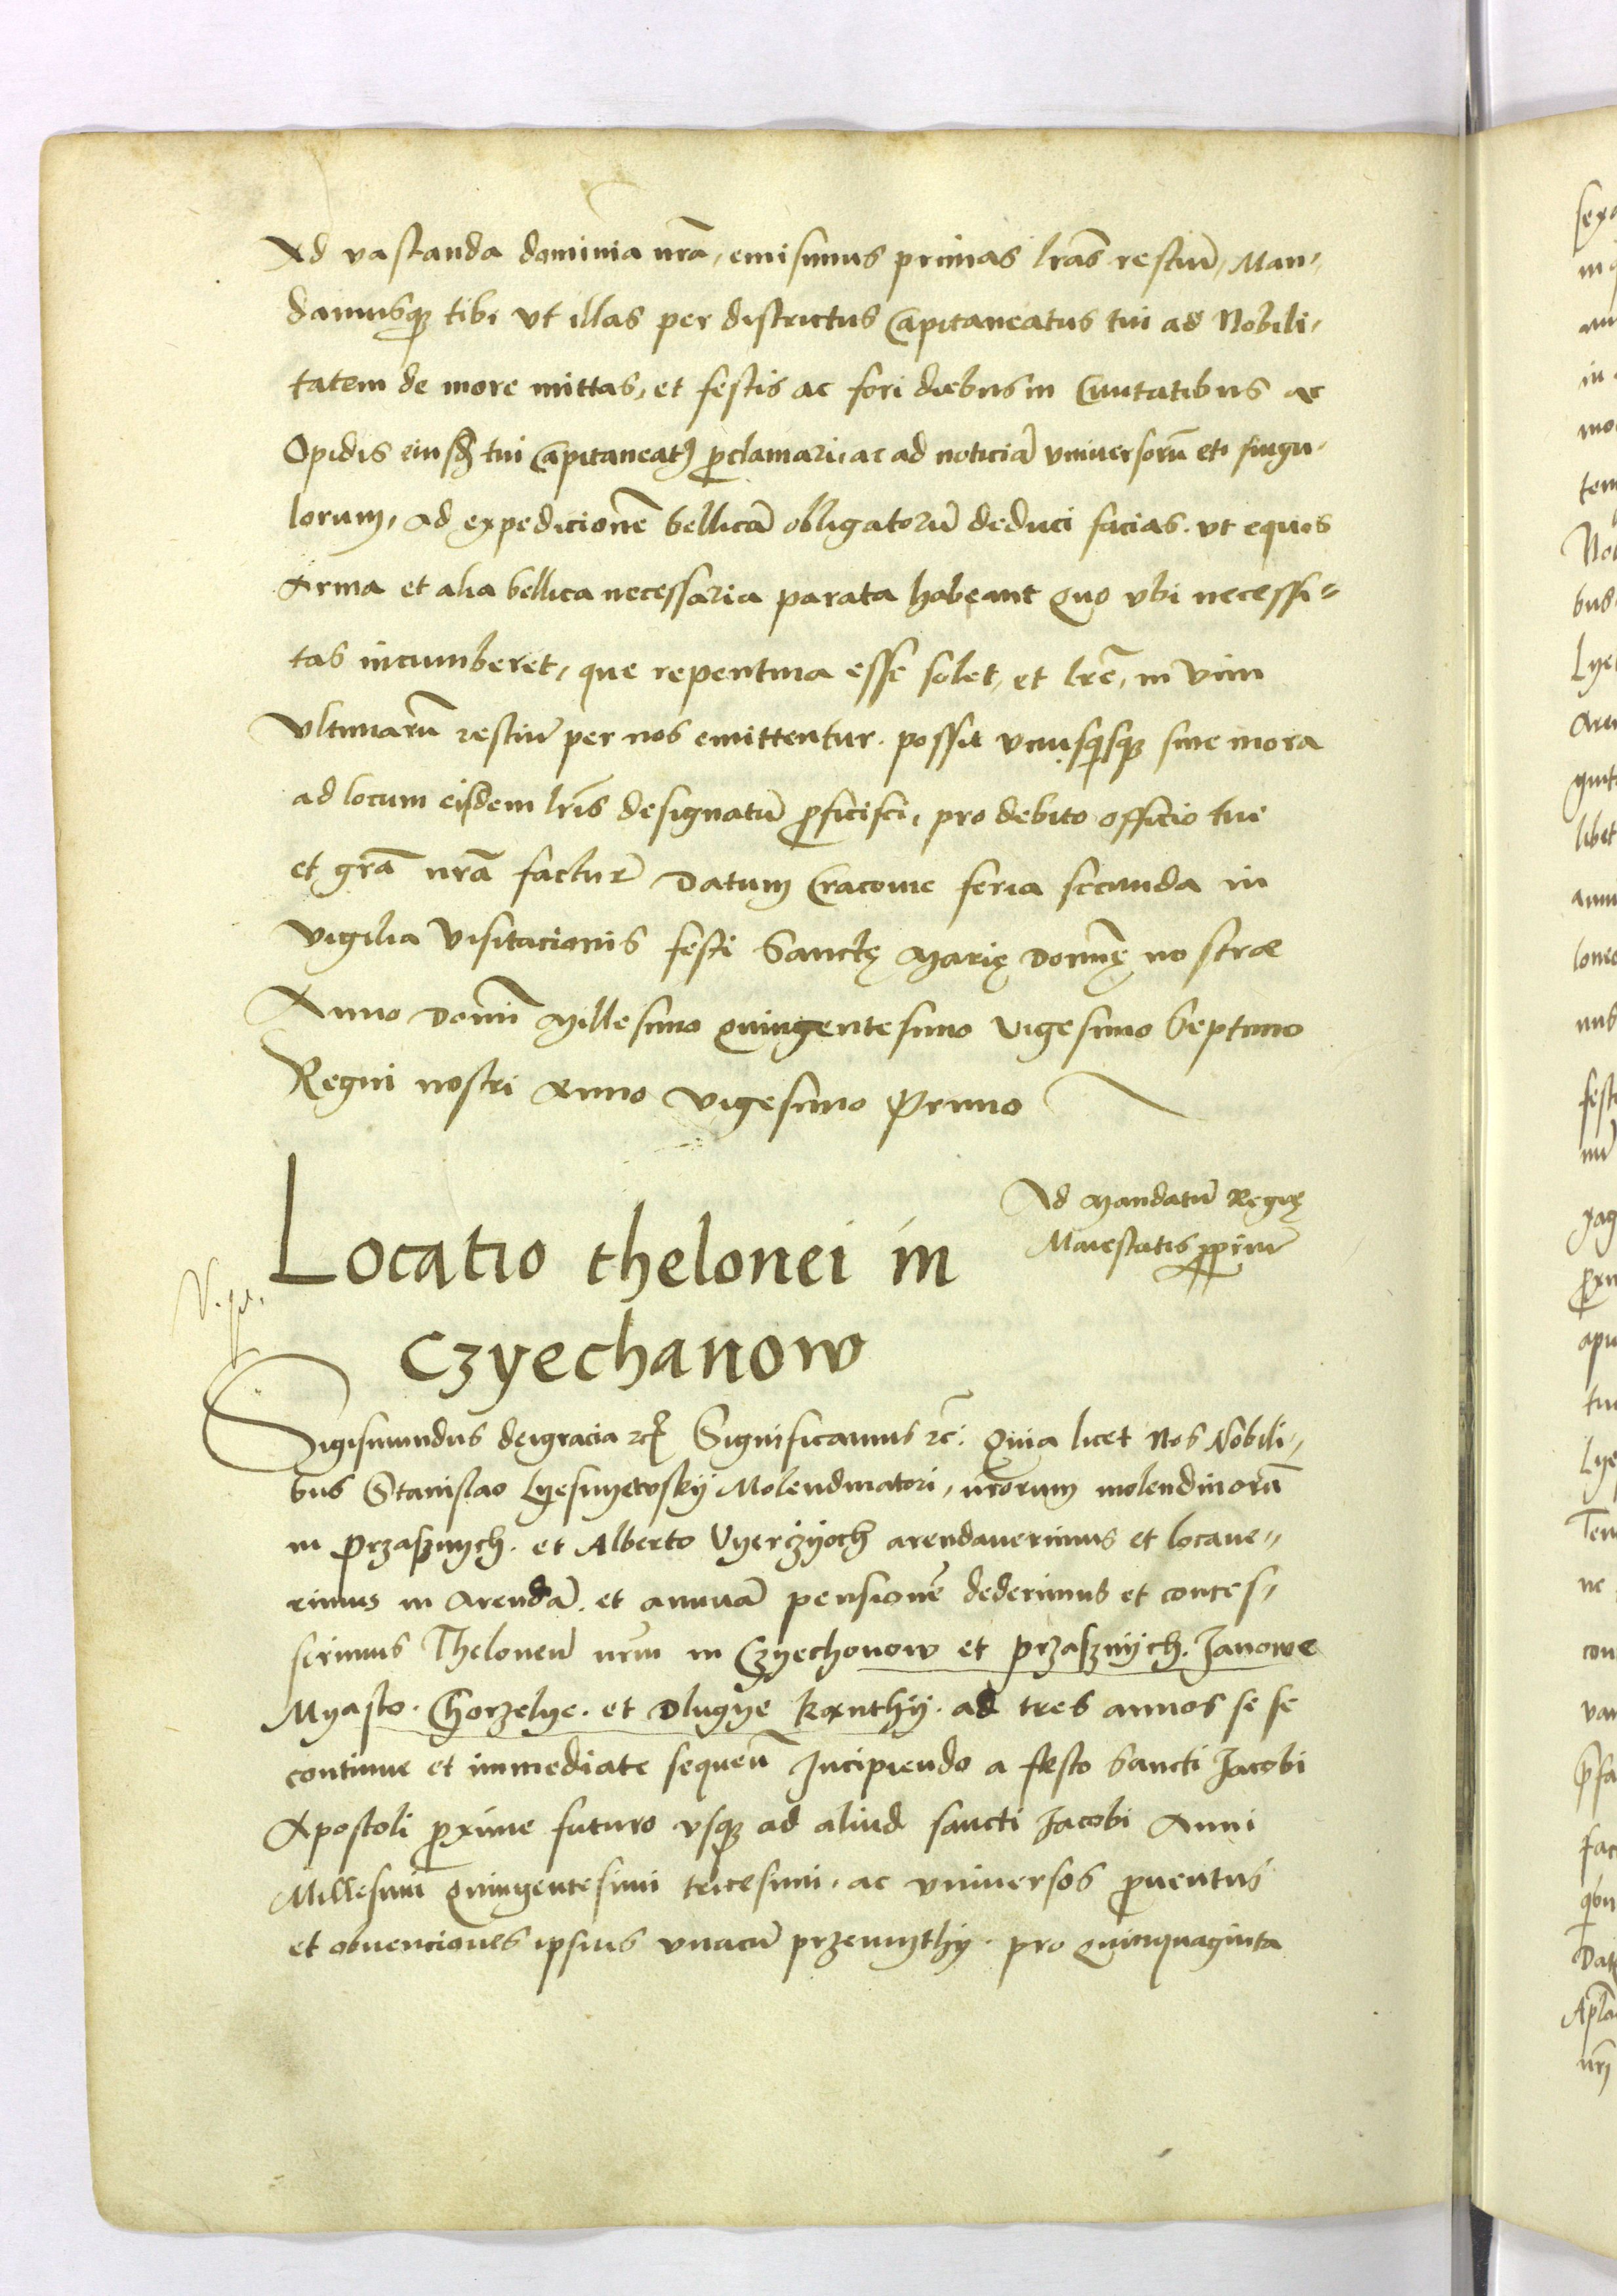 Ad vastanda dominia nrã, emisimus primas lrãs restiũ, Man-
damusq₃ tibi vt illas per districtus Capitaneatus tui ad Nobili-
tatem de more mittas, et festis ac fori diebus in Civitatibus ac
Opidis eiusdẽ tui Capitaneatꝰ ꝓclamari ac ad noticiã vniversorũ et singu-
lorum, ad expedicionẽ bellicã obligatorũ deduci facias. vt equos
Arma et alia bellica necessaria parata habeant quo vbi necessi-
tas incumberet, que repentina esse solet, et lrẽ, in vim
vltimarũ restiũ per nos emittentur. possit vnusqsq₃ sine mora
ad locum eisdem lrĩs designatũ ꝓficisci, pro debito officio tui
et grã nrã facturꝰ Datum Cracovie feria secunda in
vigilia Visitacionis festi Sanctę Marię Domĩnę nostrae
Anno Domĩ Millesimo quingentesimo vigesimo Septimo
Regni nostri Anno vigesimo Primo
Ad Mandatũ Regię
Maiestatis ꝓpriũ
Locatio thelonei in
Czyechanow
Sigismundus dei gracia ꝛc̃ Significamus ꝛc̃: Quia licet Nos Nobili-
bus Stanislao Lyesnyewsky Molendinatori, nr̃orum molendinorũ
in Przasznych. et Alberto Vyerzyoch arendaverimus et locave-
rimus in Arendã. et annuã pensionẽ dederimus et conces-
serimus Theloneũ nrm̃ in Czyechonow et przasznych. Janowe
Myasto. Chorzelye. et Dlugye kanthy. ad tres annos se se
continue et immediate sequeñ Incipiendo a festo Sancti Jacobi
Apostoli ꝓxime futuro vsq₃ ad aliud sancti Jacobi Anni
Millesimi quingentesimi tricesimi. ac vniversos ꝓventus
et obvenciones ipsius vnacũ przemythy. pro quinquaginta